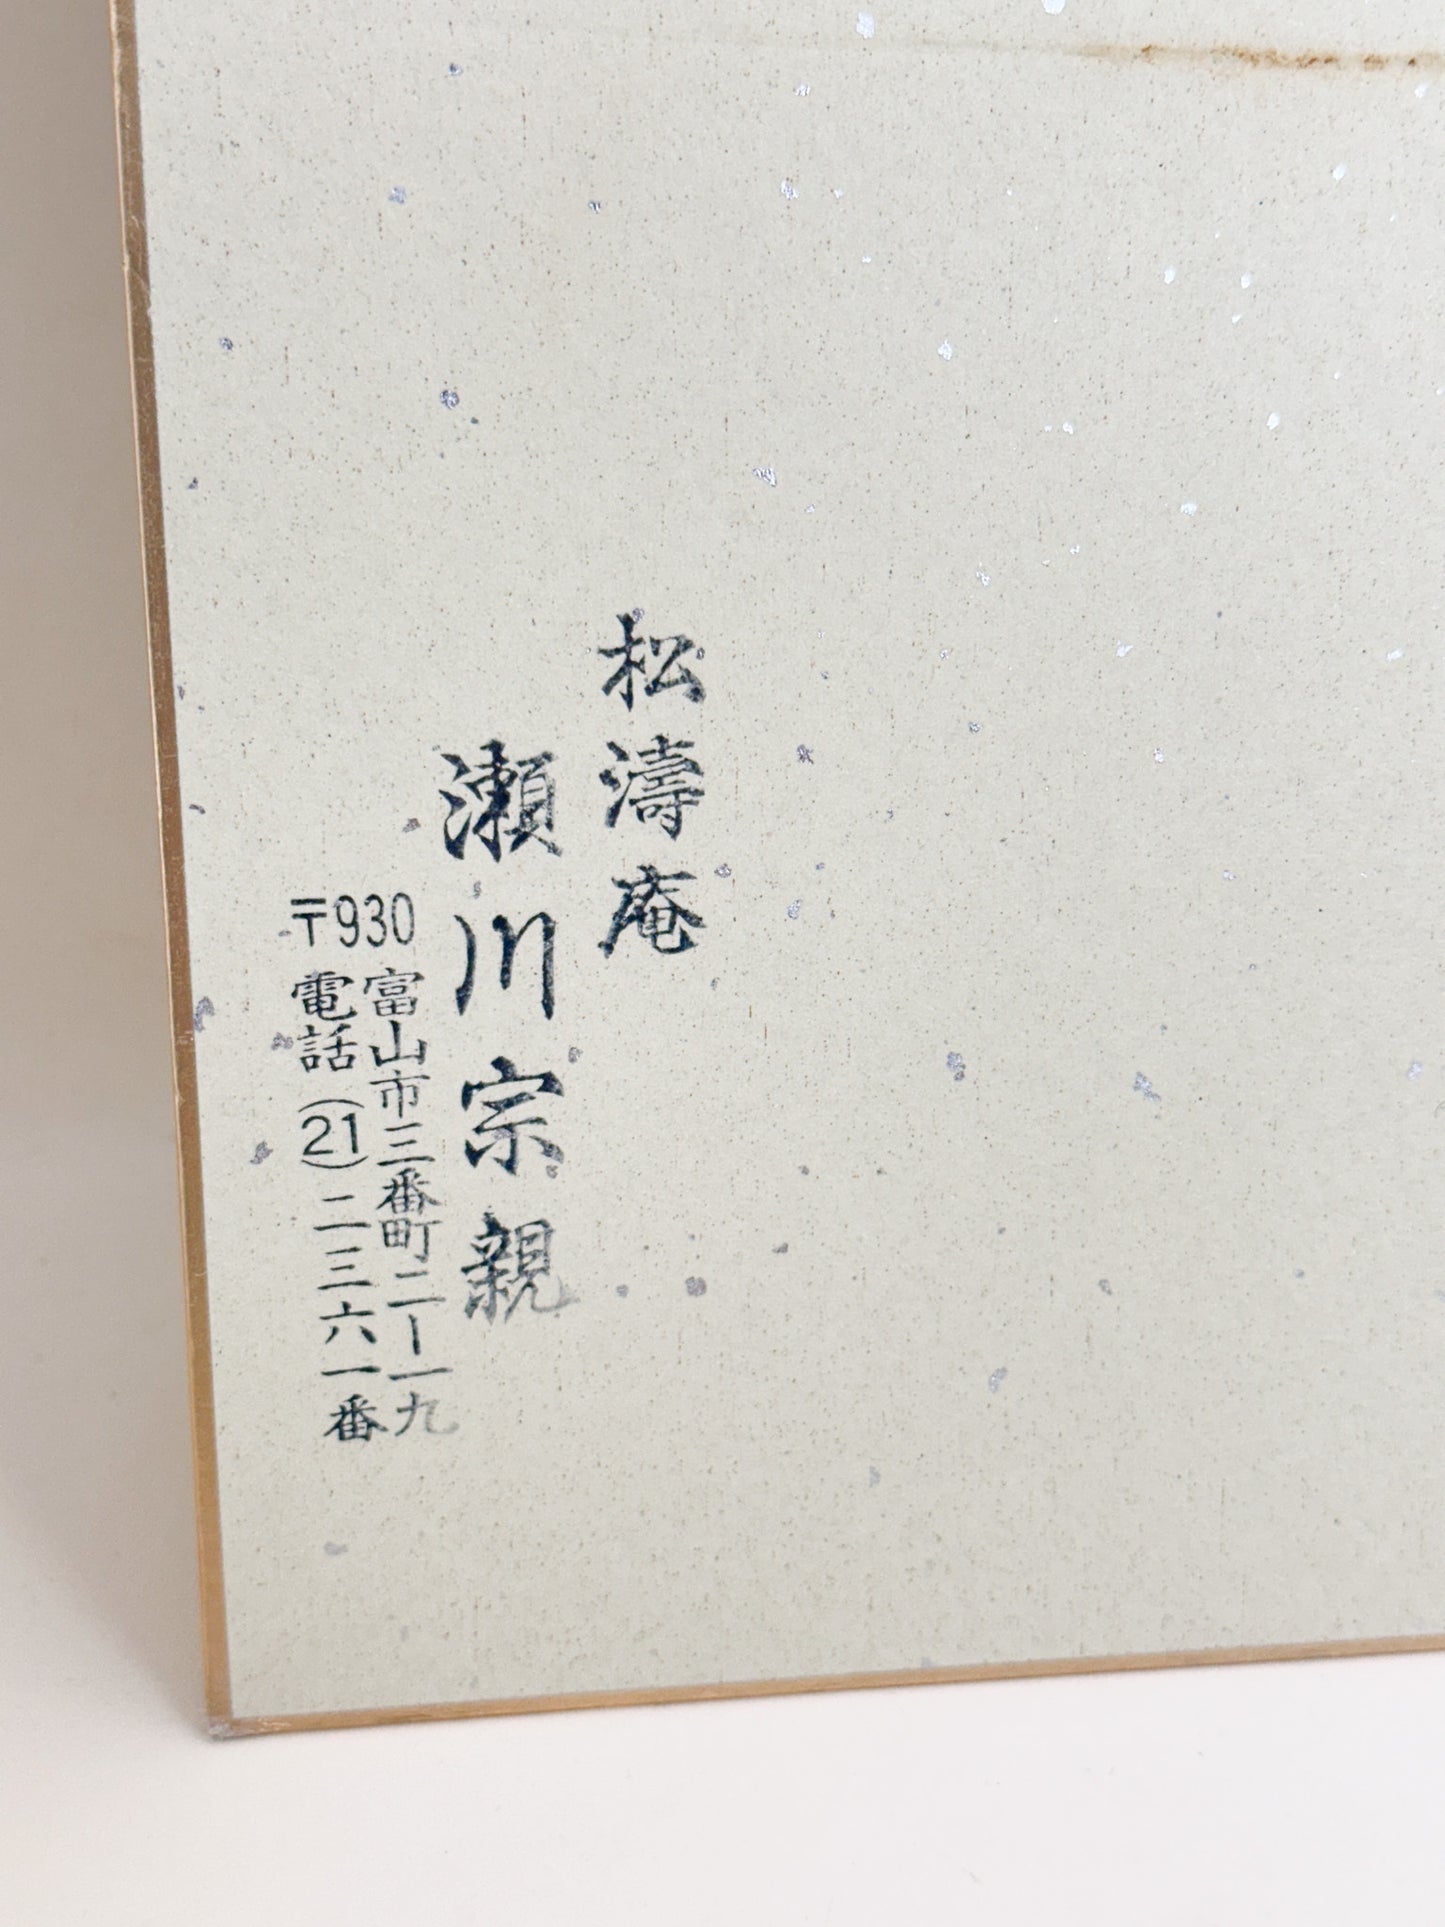 松濤庵
瀬川宗親
〒930
富山市三番町二ー一九
電話(21)二三六一番